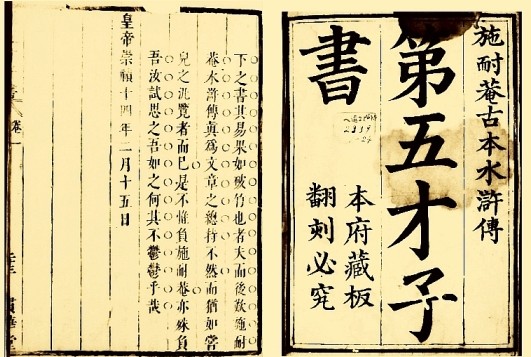 施耐菴古本水滸傳
第五才子
書
本府藏板
翻刻必究
下之書其易果如破竹也者夫而後歎施耐
菴水滸傳真為文章之總持不然而猶如常
兒之汎覽者而已是不惟負施耐菴亦殊負
吾汝試思之吾如之何其不鬱鬱乎哉
皇帝崇禎十四年二月十五日
卷一
貫華堂